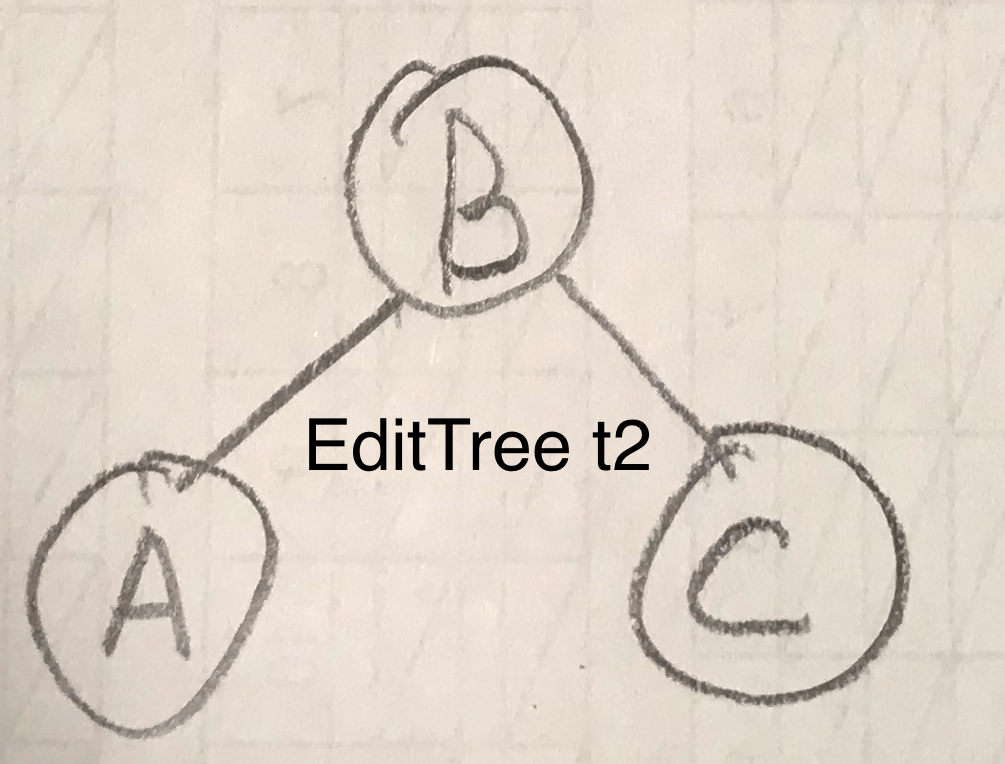 B
EditTree t2
A
C